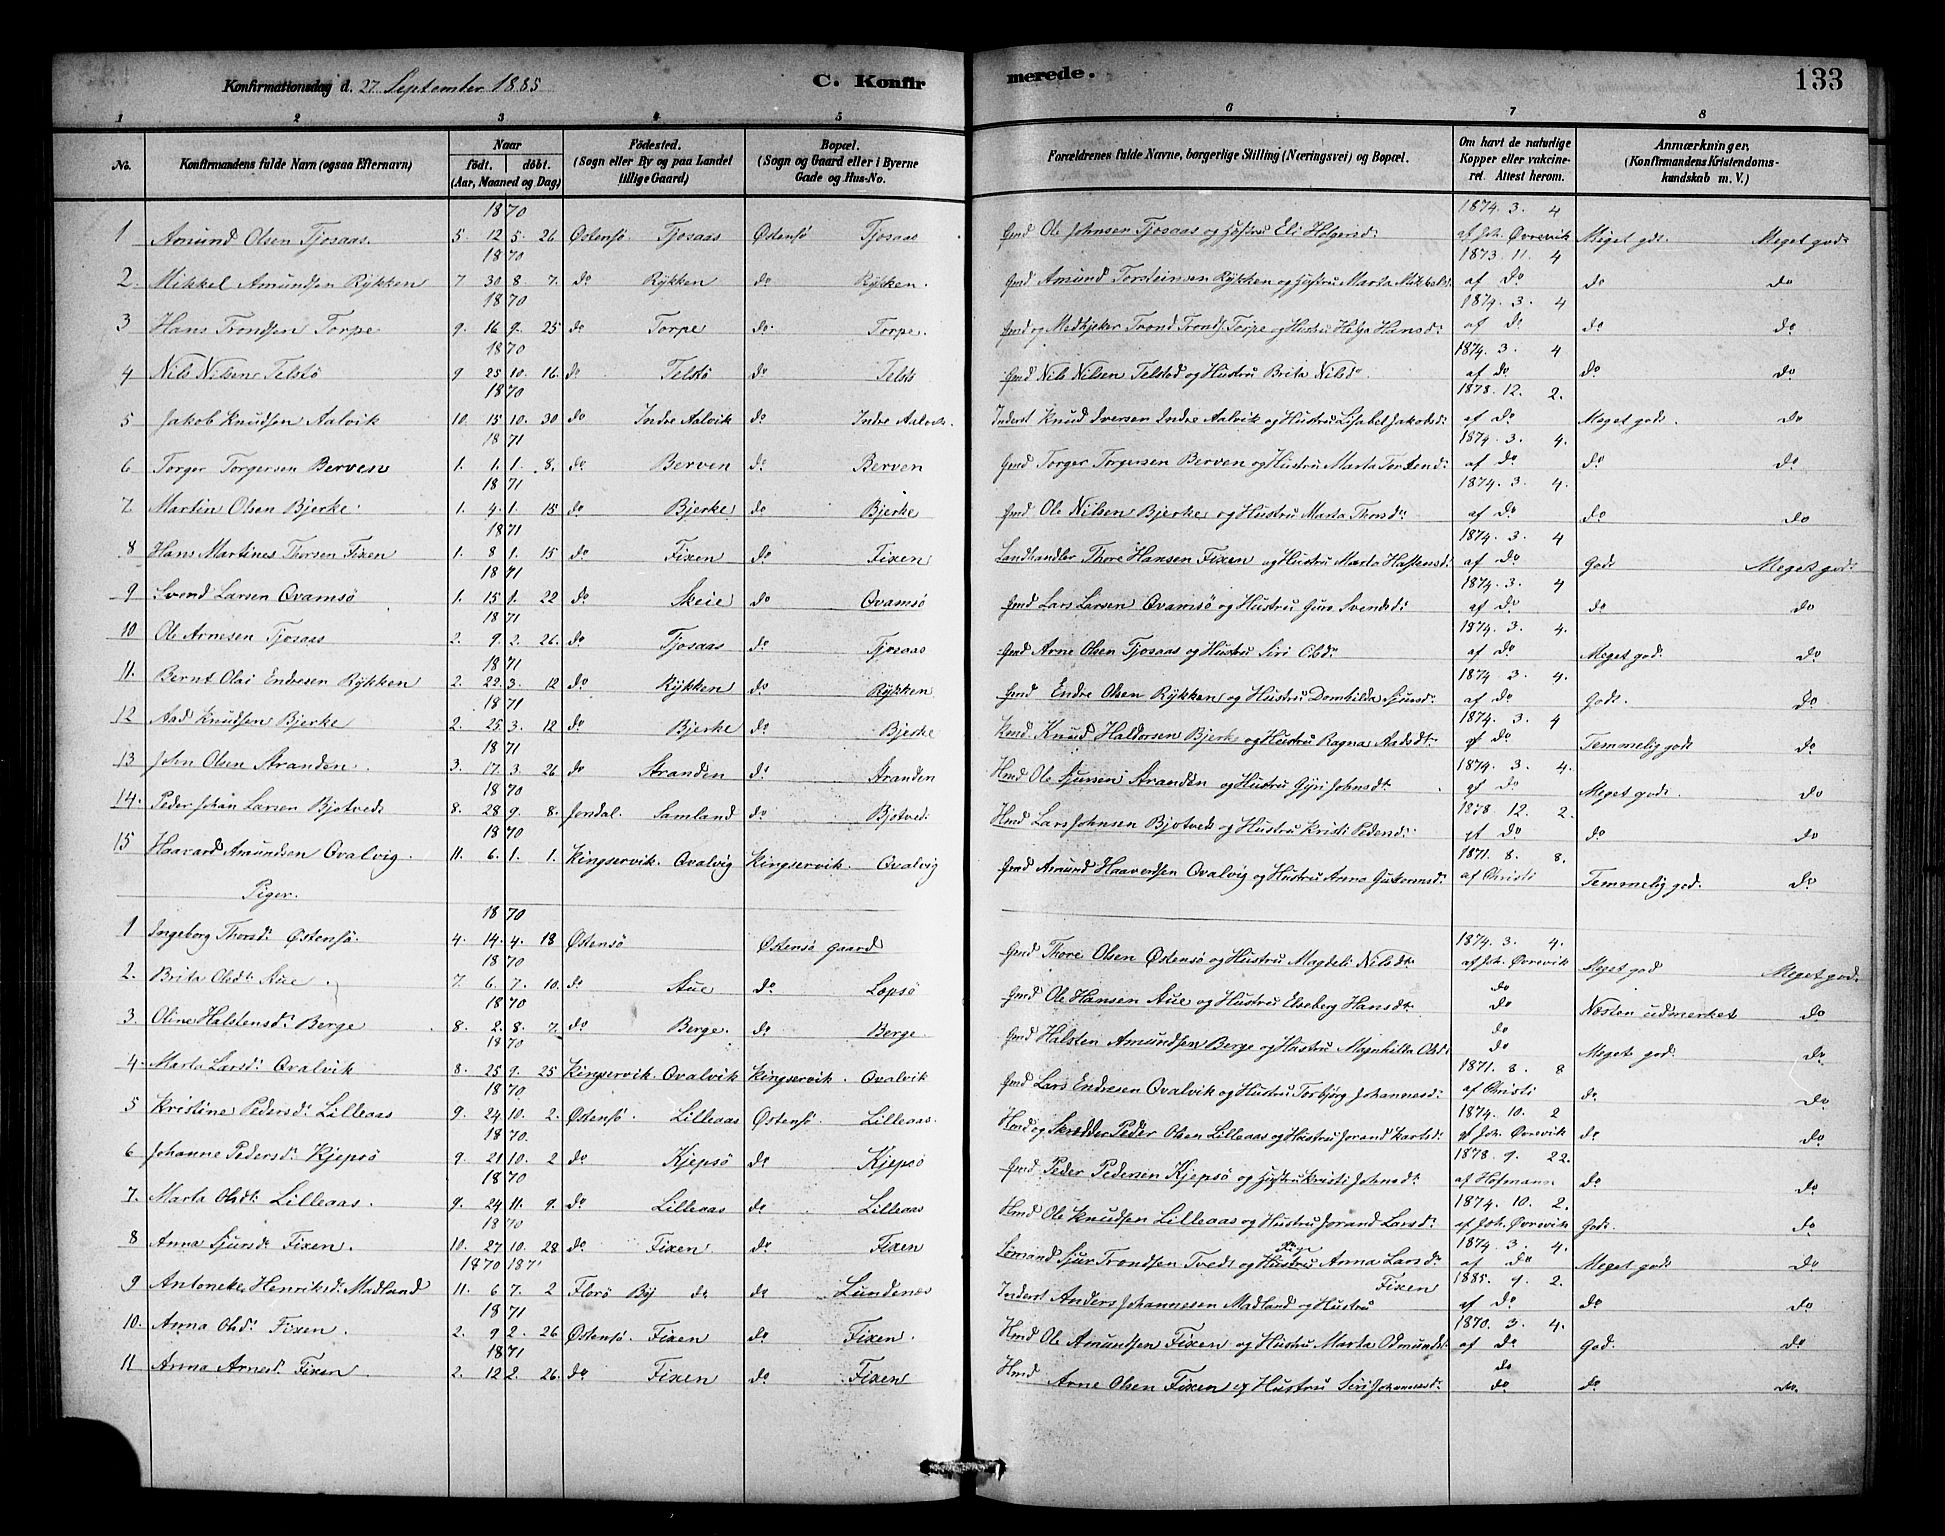 Konfirmationsdag d. 27 September 1885
C. Konfir
merede.
133
1 2 3 4 5 6 7 8
No. Konfirmandens fulde Navn (ogsaa Efternavn) Naar födt. döbt. (Aar, Maaned og Dag) Födested. (Sogn eller By og paa Landet tillige Gaard) Bopæl. (Sogn og Gaard eller i Byerne Gade og Hus-No. Forældrenes fulde Navne, borgerlige Stilling (Næringsvei) og Bopæl. Om havt de naturlige Kopper eller vakcineret. Attest herom. Anmærkninger, (Konfirmandens Kristendomskundskab m. V.)
1870 1874. 3. 4
1 Amund Olsen Tjosaas. 5. 12 5. 26 Østensö Tjosaas Østensö Tjosaas Gmd Ole Johnsen Tjosaas og Hustru Eli Holgersd: af Joh. Øvrevik Meget god. Meget god.
1870 1873. 11. 4
2. Mikkel Amundsen Rykken 7 30 8 7. do Rykken do Rykken. Gmd Amund Torsteinsen Rykken og Hustru Marta Mikkelsd: af do do do
1870 1874. 3. 4
3 Hans Trondsen Torpe 9. 16 9. 25 do Torpe do Torpe. Gmd og Medhjelper Trond Tronds. Torpe og Hustru Helga Hansd: af do do do
1870 1874. 3. 4
4 Nils Nilsen Telstö 9 25 10. 16. do Telstö do Telstö Gmd Nils Nilsen Telstö og Hustru Brita Nilsd: af do do do
1870 1878. 12. 2.
5 Jakob Knudsen Aalvik 10. 15 10. 30 do Indre Aalvik do Indre Aalvik. Inderst Knud Iversen Indre Aalvik og Hustru Lisabet Jakobsd: af do Meget god. do
1871 1874. 3. 4.
6 Torger Torgersen Berven 1. 1. 1. 8. do Berven do Berven Gmd Torger Torgersen Berven og Hustru Marta Torstensd: af do do do
1871 1874. 3. 4.
7. Martin Olsen Bjerke. 1. 4. 1. 15 do Bjerke do Bjerke Gmd Ole Nilsen Bjerke og Hustru Marta Thorsd: af do do do
1871 1874. 3. 4
8 Hans Martines Thorsen Fixen 1. 8 1. 15 do Fixen do Fixen Landhandler Thore Hansen Fixen og Hustru Marta Halstensd: af do God. Meget god.
1871 1874. 3. 4
9 Svend Larsen Qvamsö 1. 15 1. 22 do Skeie do Qvamsö Gmd Lars Larsen Qvamsö og Hustru Guro Svendsd: af do do do
1871 1874. 3. 4.
10 Ole Arnesen Tjosaas 2. 9. 2. 26. do Tjosaas do Tjosaas Gmd Arne Olsen Tjosaas og Hustru Siri Olsd: af do Meget god. do
1871 1874. 3. 4.
11. Bernt Olai Endresen Rykken 2. 22. 3. 12 do Rykken do Rykken Gmd Endre Olsen Rykken og Hustru Domhilda Sjursd: af do God. do
1871 1874. 3. 4
12 Aad Knudsen Bjerke 2. 25 3. 12 do Bjerke do Bjerke Hmd Knud Haldorsen Bjerke og Hustru Ragna Aadsdt. af do Temmelig god do
1871 1874. 3. 4.
13 John Olsen Stranden. 3. 17. 3. 26 do Stranden do Stranden Hmd Ole Sjursen Stranden og Hustru Gyri Johnsdt. af do Meget god. do
1870 1878 12. 2.
14. Peder Johan Larsen Bjotved. 8. 28 9. 8. Jondal. Samland do Bjotved Hmd Lars Johnsen Bjotved og Hustru Kristi Pedersd: af do do do
1870 1871. 8. 8.
15 Haavard Amundsen Qvalvig. 11. 6. 1. 1. Kingservik. Qvalvig Kingservik. Qvalvig Gmd Amund Haavardsen Qvalvig og Hustru Anna Guttormsd: af Christi Temmelig god. do
Piger.
1870 1874. 3. 4.
1 Ingeborg Thorsd: Østensö. 4. 14. 4. 18 Østensö Østensö Gaard Gmd Thore Olsen Østensö og Hustru Magdeli Nilsdt. af Joh. Øvrevik Meget god Meget god.
1870 do
2. Brita Olsdt. Aue. 7. 6. 7. 10. do Aue do Lopsö Gmd Ole Hansen Aue og Hustru Elseberg Hansdt. do Næsten udmerket do
1870 do
3. Oline Halstensd: Berge 8. 2. 8. 7. do Berge. do Berge. Gmd Halsten Amundsen Berge og Hustru Magnhilda Olsd: do Meget god. do
1870 1871. 8. 8
4. Marta Larsd: Qvalvik 8. 25 9. 25 Kingservik. Qvalvik Kingservik. Qvalvik Gmd Lars Endresen Qvalvik og Hustru Torbjörg Johannesd: af Christi do do
1870 1874. 10. 2
5 Kristine Pedersd: Lilleaas 9. 24 10. 2. Østensö. Lilleaas Østensö. Lilleaas. Hmd og Skredder Peder Olsen Lilleaas og Hustru Jorand Larsd: af Joh. Øvrevik do do
1870. 1878. 9. 22.
6 Johanne Pedersd: Kjepsö 9. 21 10. 2 do Kjepsö do Kjepsö Gmd Peder Pedersen Kjepsö og Hustru Kristi Johnsdt. af Hofmann do do
1870 1874. 10. 2.
7. Marta Olsdt: Lilleaas. 9. 24 11. 9. do Lilleaas do Lilleaas Hmd Ole Knudsen Lilleaas og Hustru Jorand Larsd: af Joh. Øvrevik God. do
1870 1874. 3. 4.
8 Anna Sjursd: Fixen. 10. 27 10. 28 do Fixen do Fixen Sømand Sjur Trondsen Tveds og Pige Hustru Anna Larsd: Fixen af do Meget god. do
1870 1871 1885. 9. 2.
9 Antoneke Henriksd: Madland 11. 6 7. 2 Florö By do do Lundenes Inderst Anders Johannesen Madland og Hustru af do do do
1871 1870. 3. 4.
10. Anna Olsd: Fixen. 2. 9 2. 26 Østensö. Fixen do Fixen. Hmd Ole Amundsen Fixen og Hustru Marta Odmundsdt. af do God. do
1871 do
11 Anna Arnesd: Fixen. 2. 12 2. 26. do Fixen do Fixen Hmd Arne Olsen Fixen og Hustru Siri Johannesd: do do do.